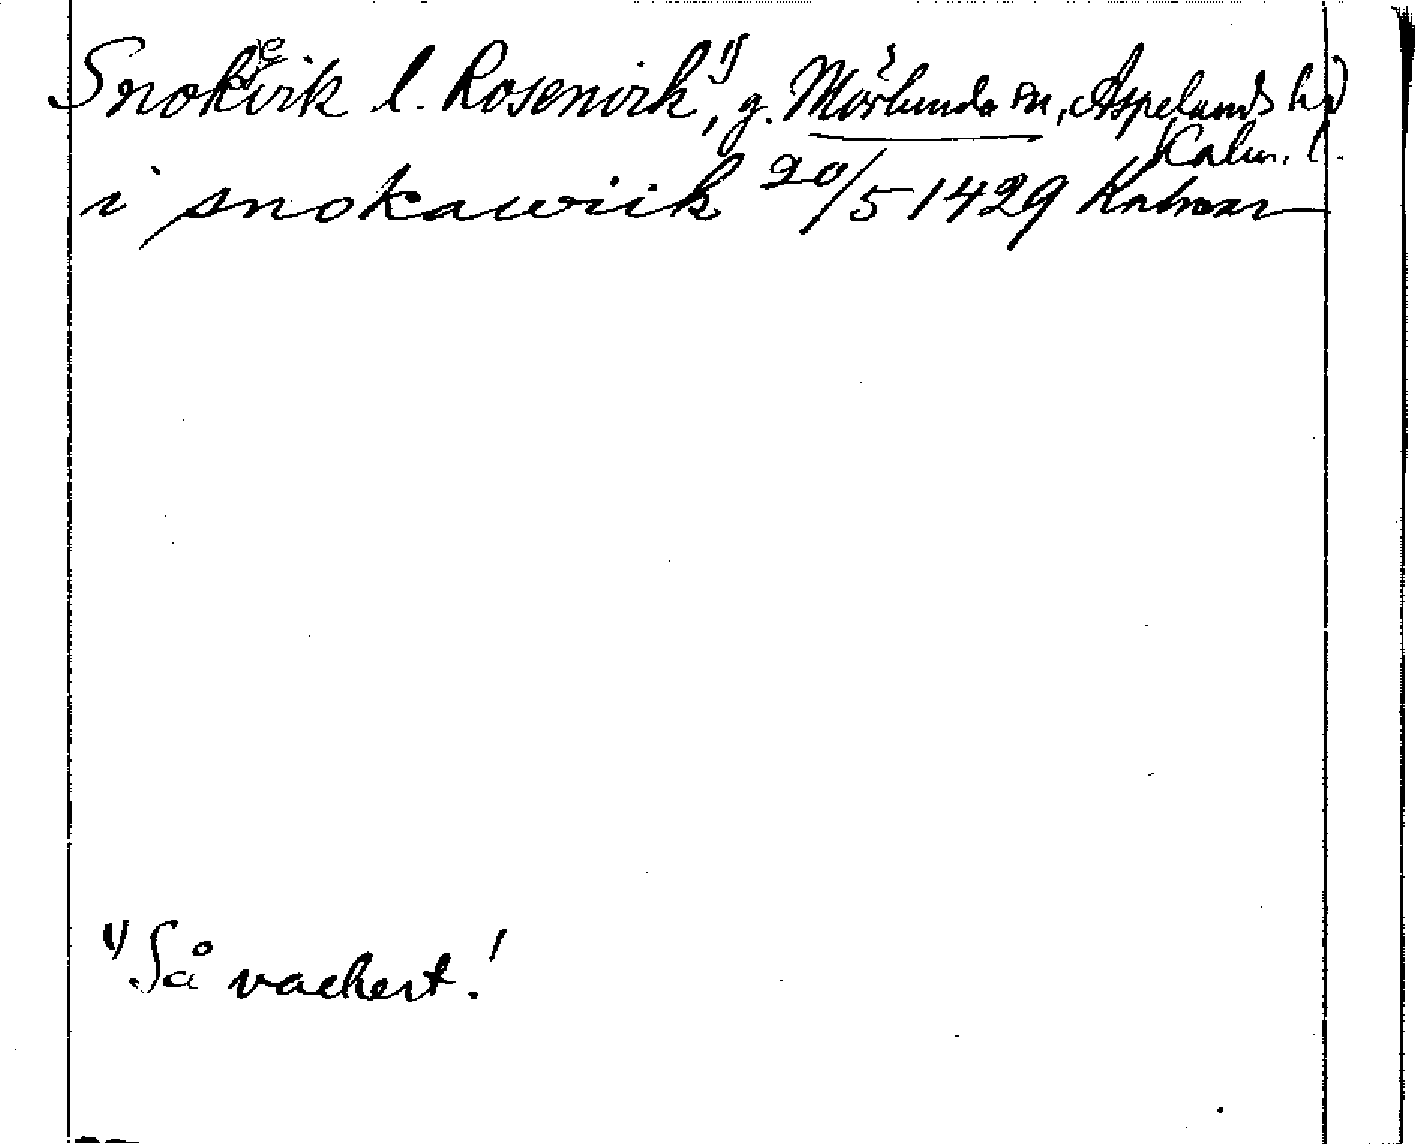 Snokevik l. Rosenvik,¹⁾ g. Mörlunda sn, Aspelands hd
Kalm. l.
i snokawiik 20/5 1429 Kalmar
¹⁾ Så vackert!